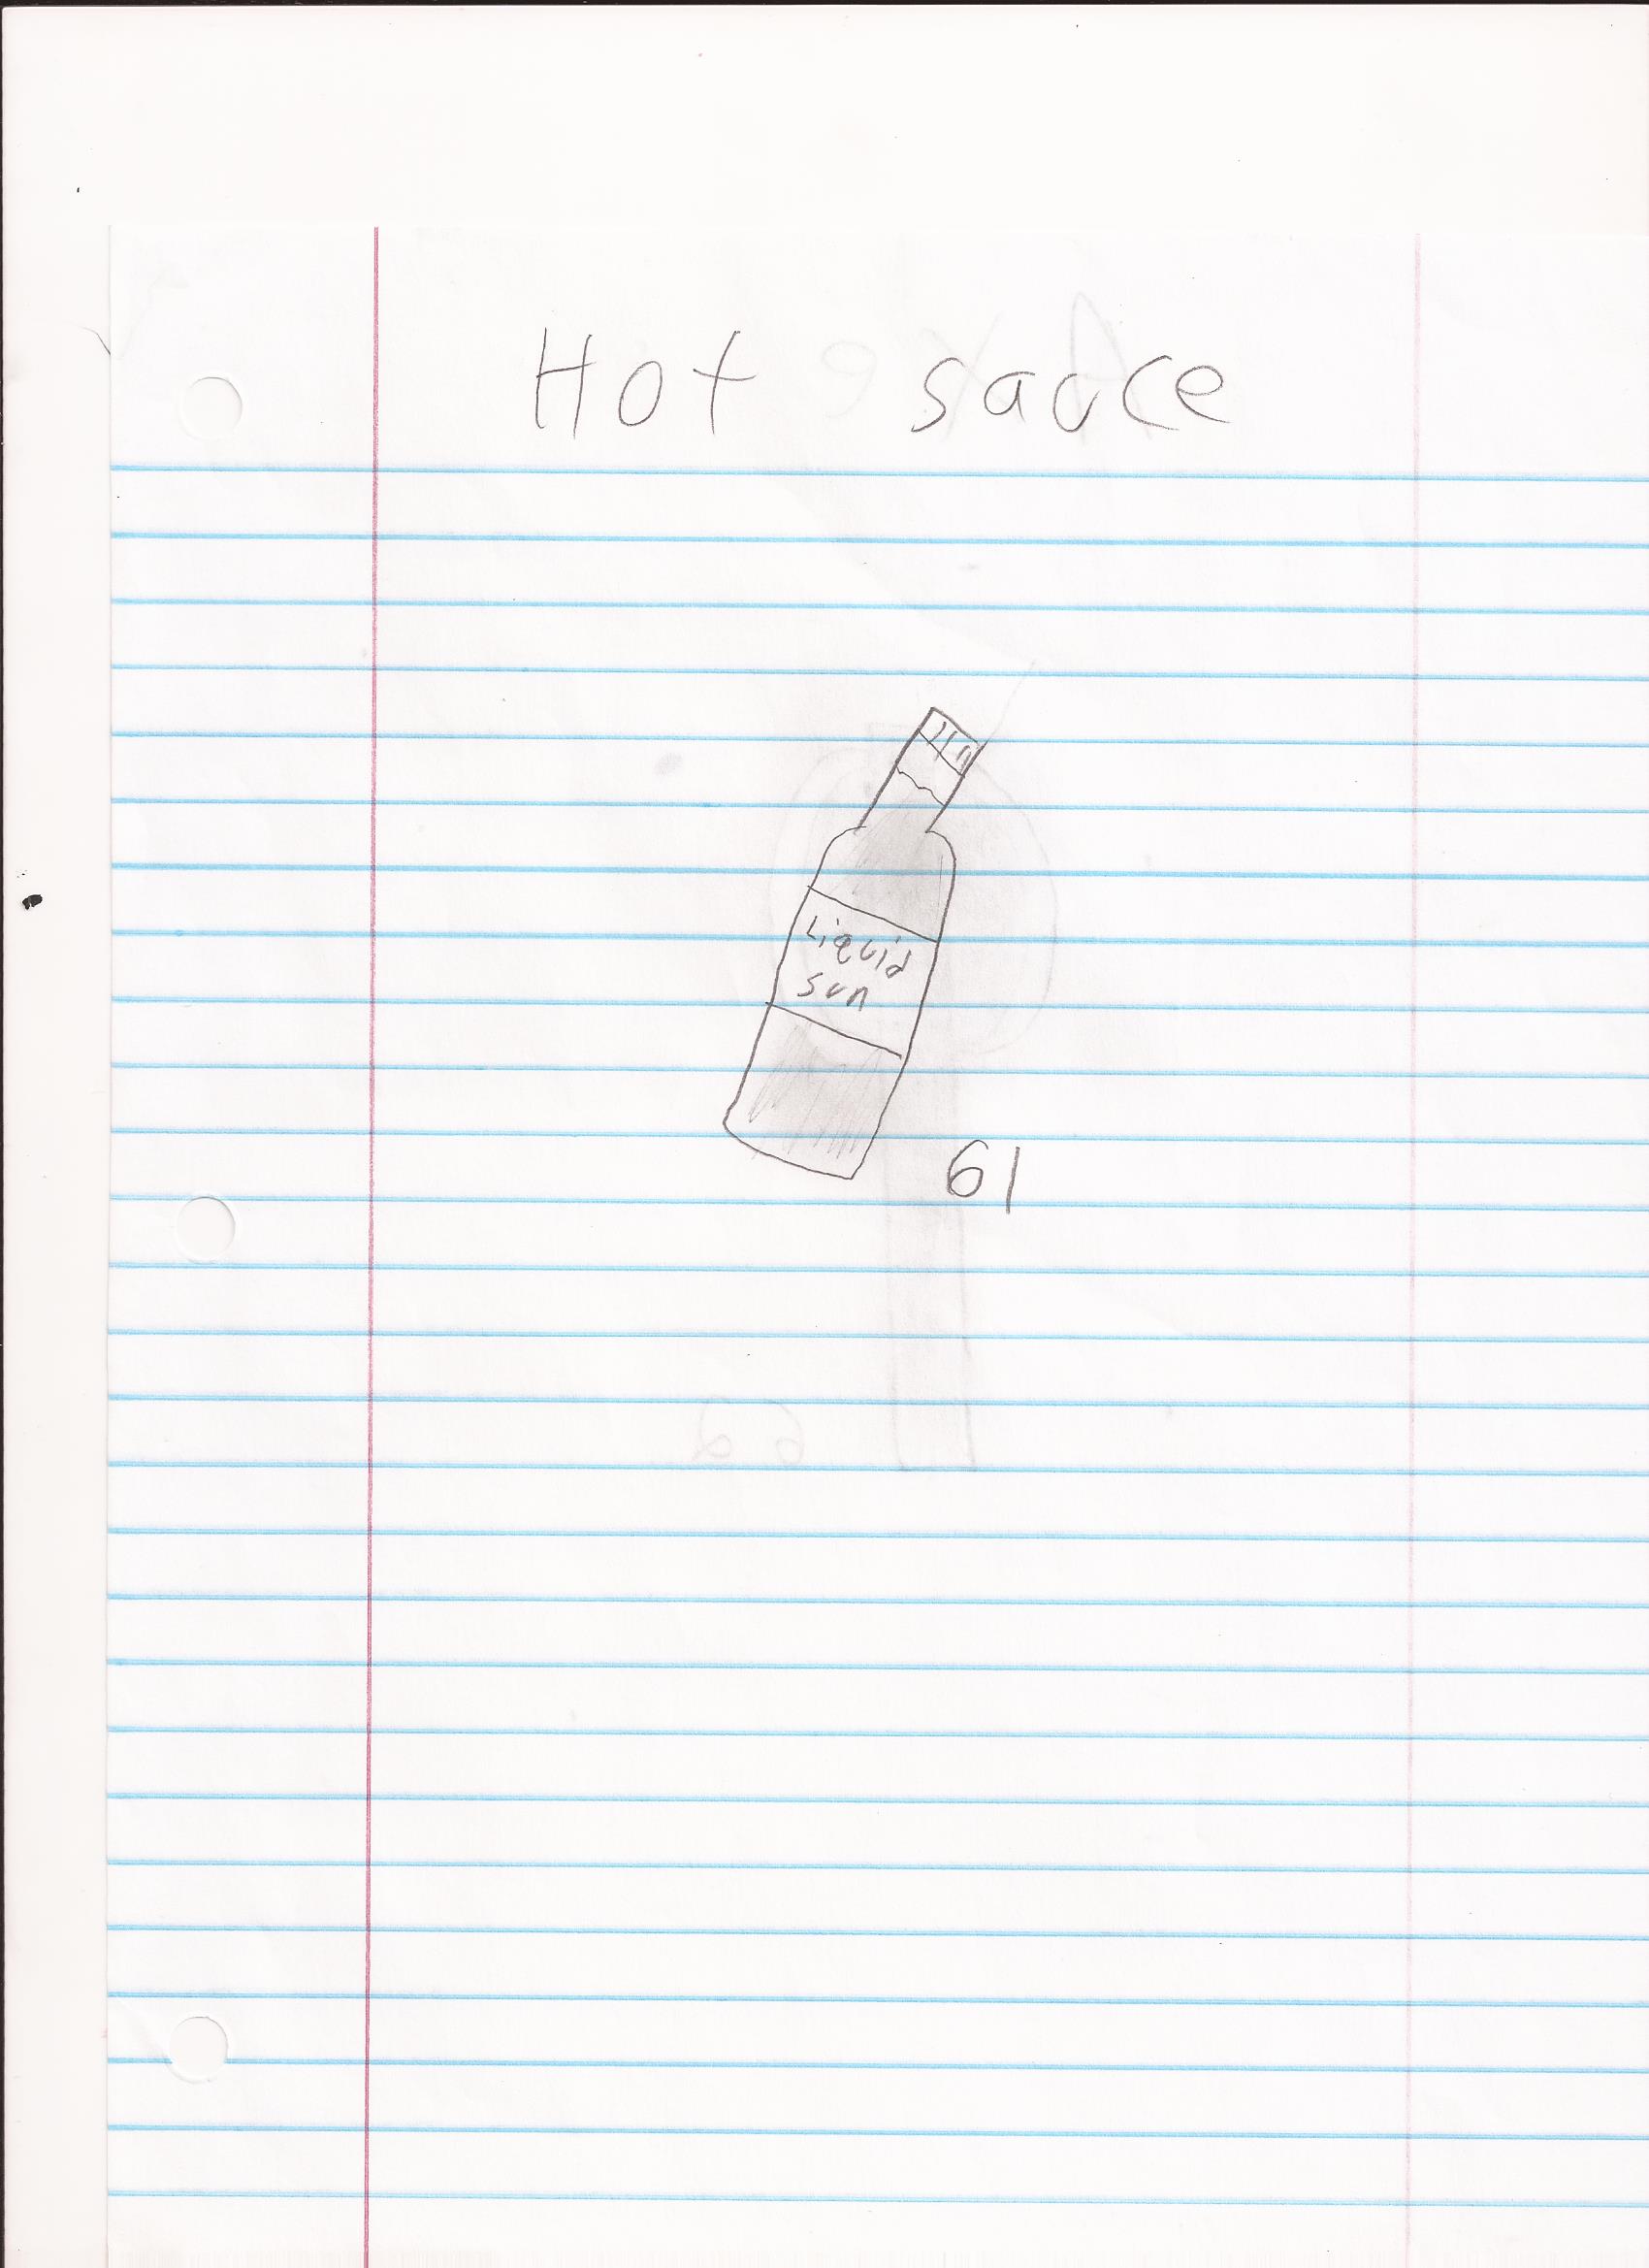 Hot sauce
Liquid
sun
61
62